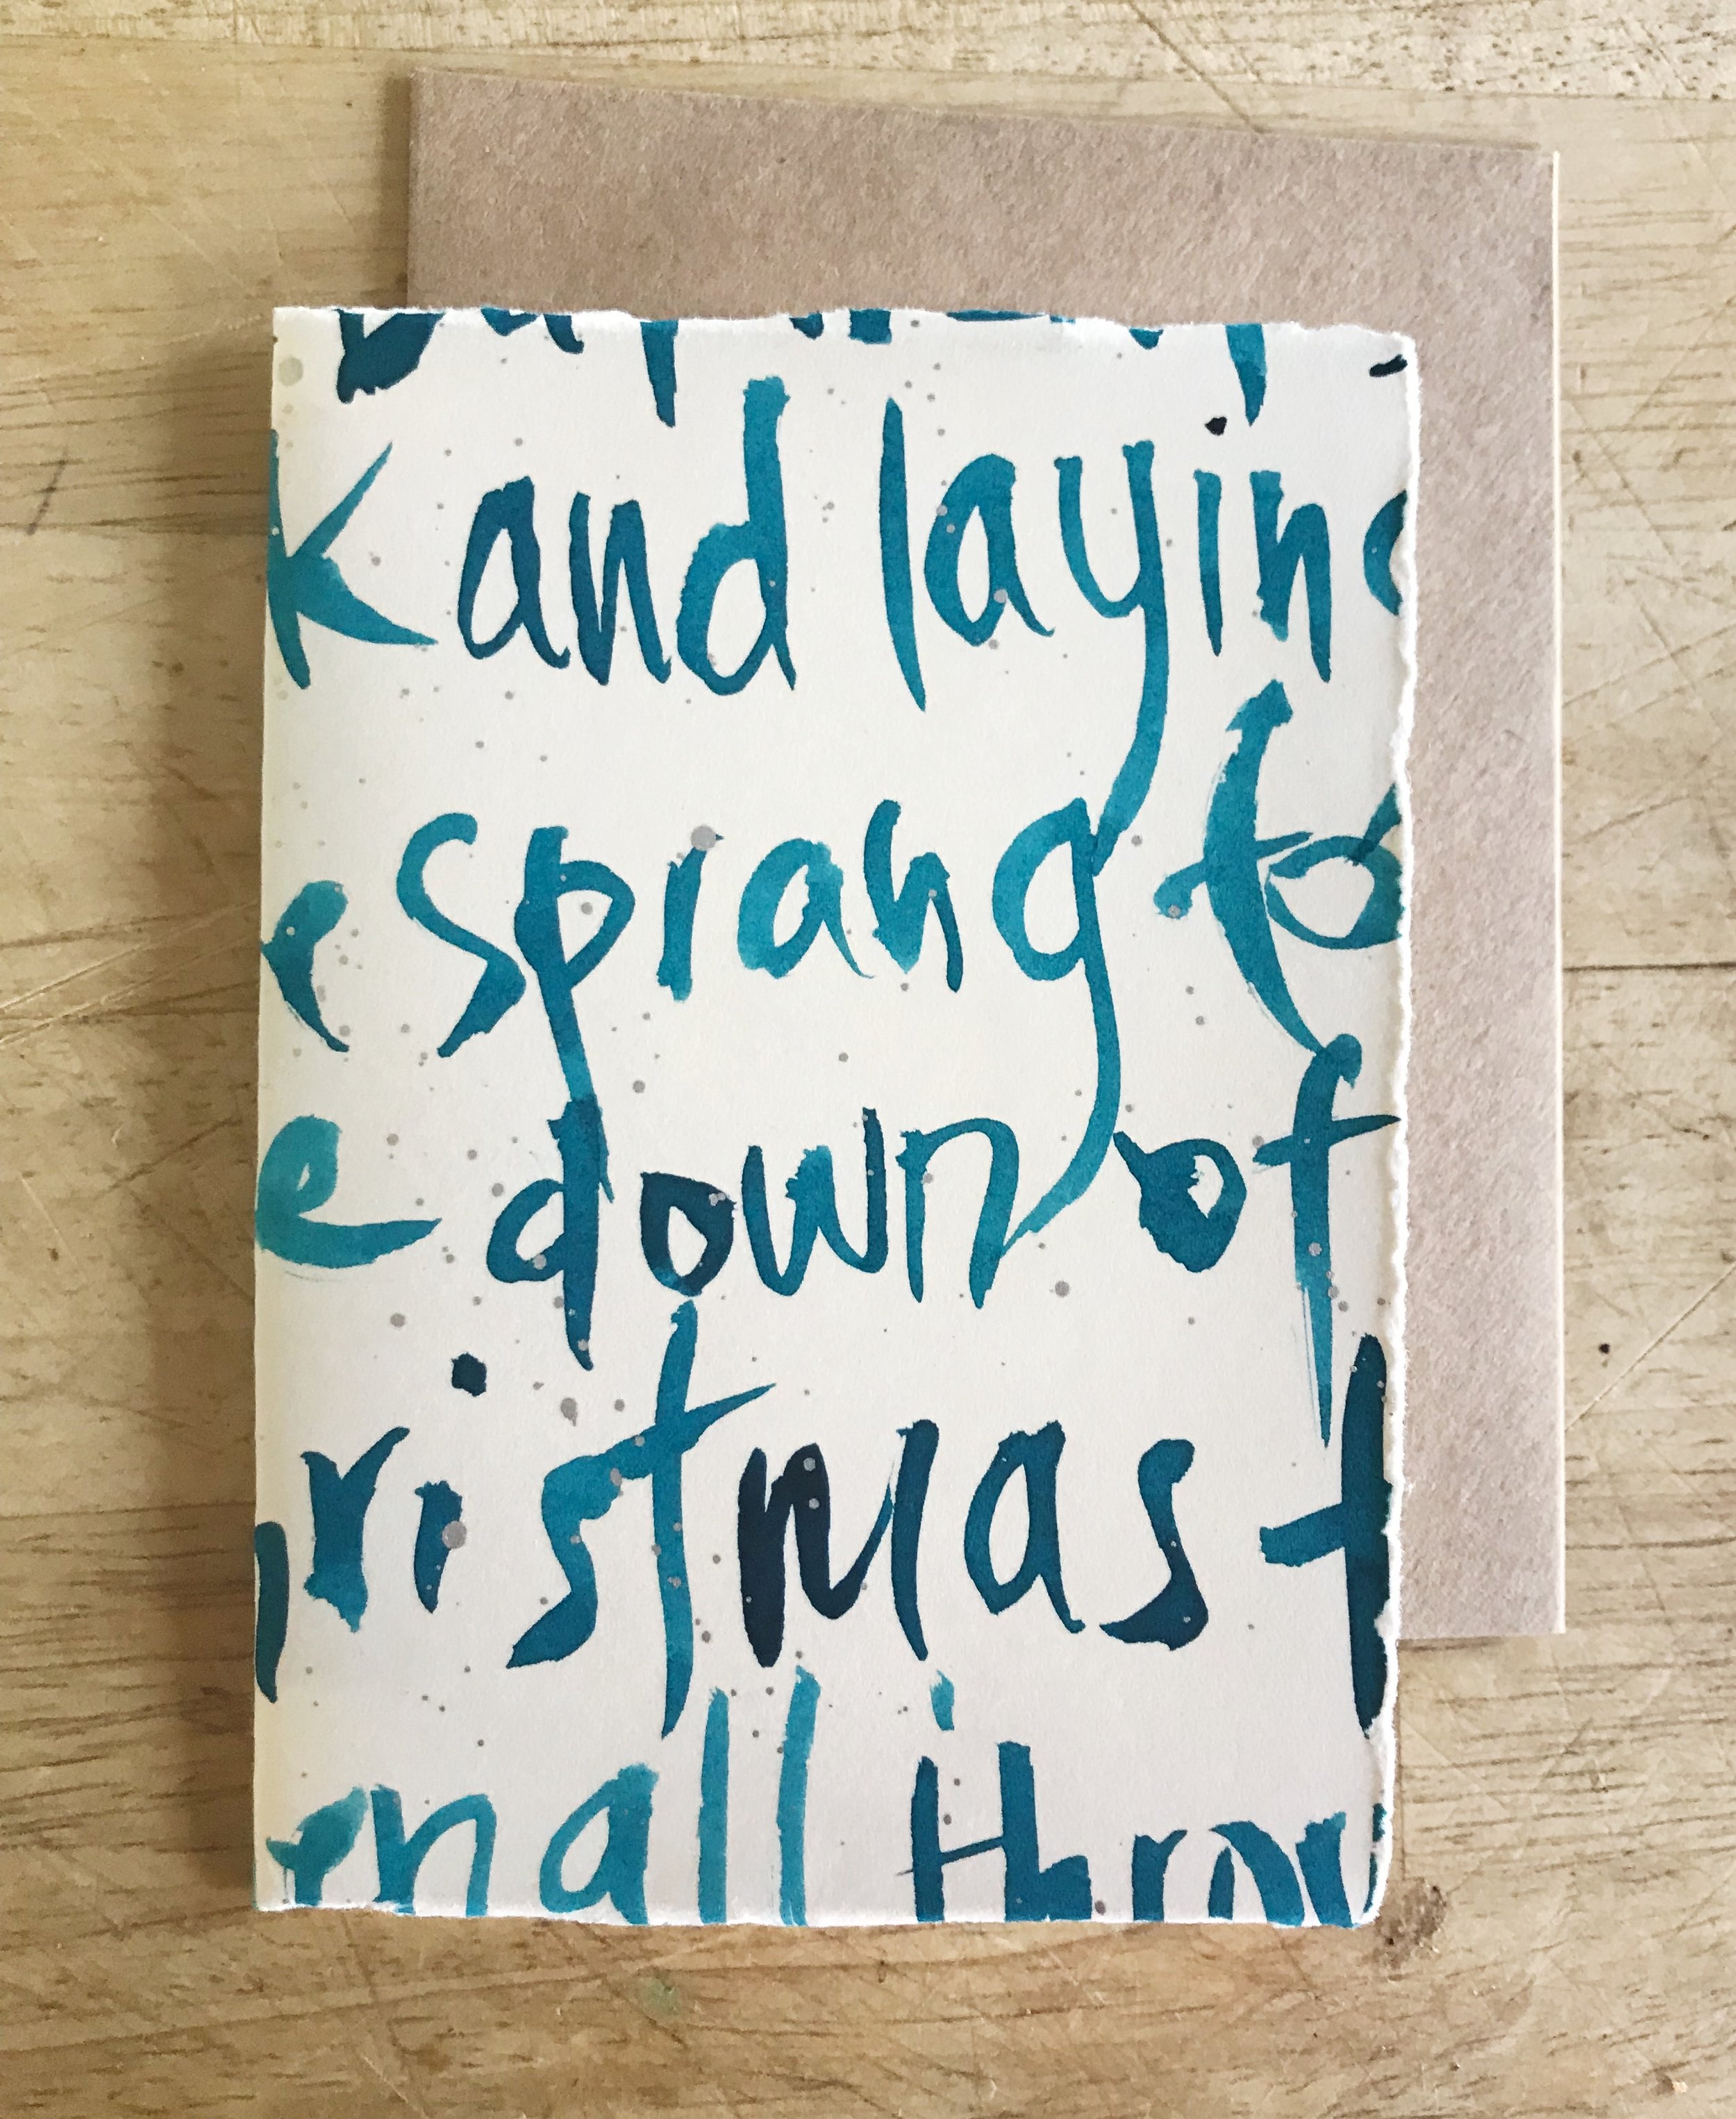 k and laying
e sprang to
e down of
hristmas t
en all throu